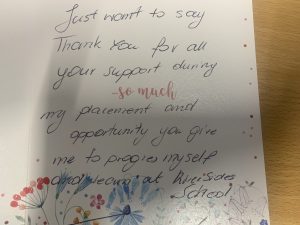 Just want to say
Thank You for all
your support during
-so much
my placement and
opportunity you give
me to progres myself
and learn at Riversides
School